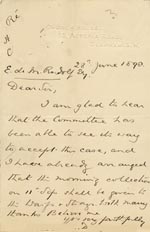 28th June 1890.
E. de M. Rudolf Esq
Dear Sir,
I am glad to hear
that the Committee has
been able to see its way
to accept this case, and
I have already arranged
that the morning collection
on 11th Sep shall be given to
the Waifs & Strays. With many
thanks Believe me
yours faithfully